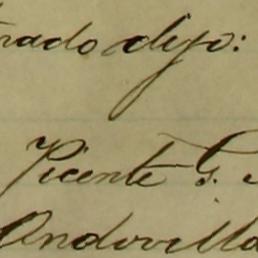 rado dijo:
Vicente G.
Andovilla